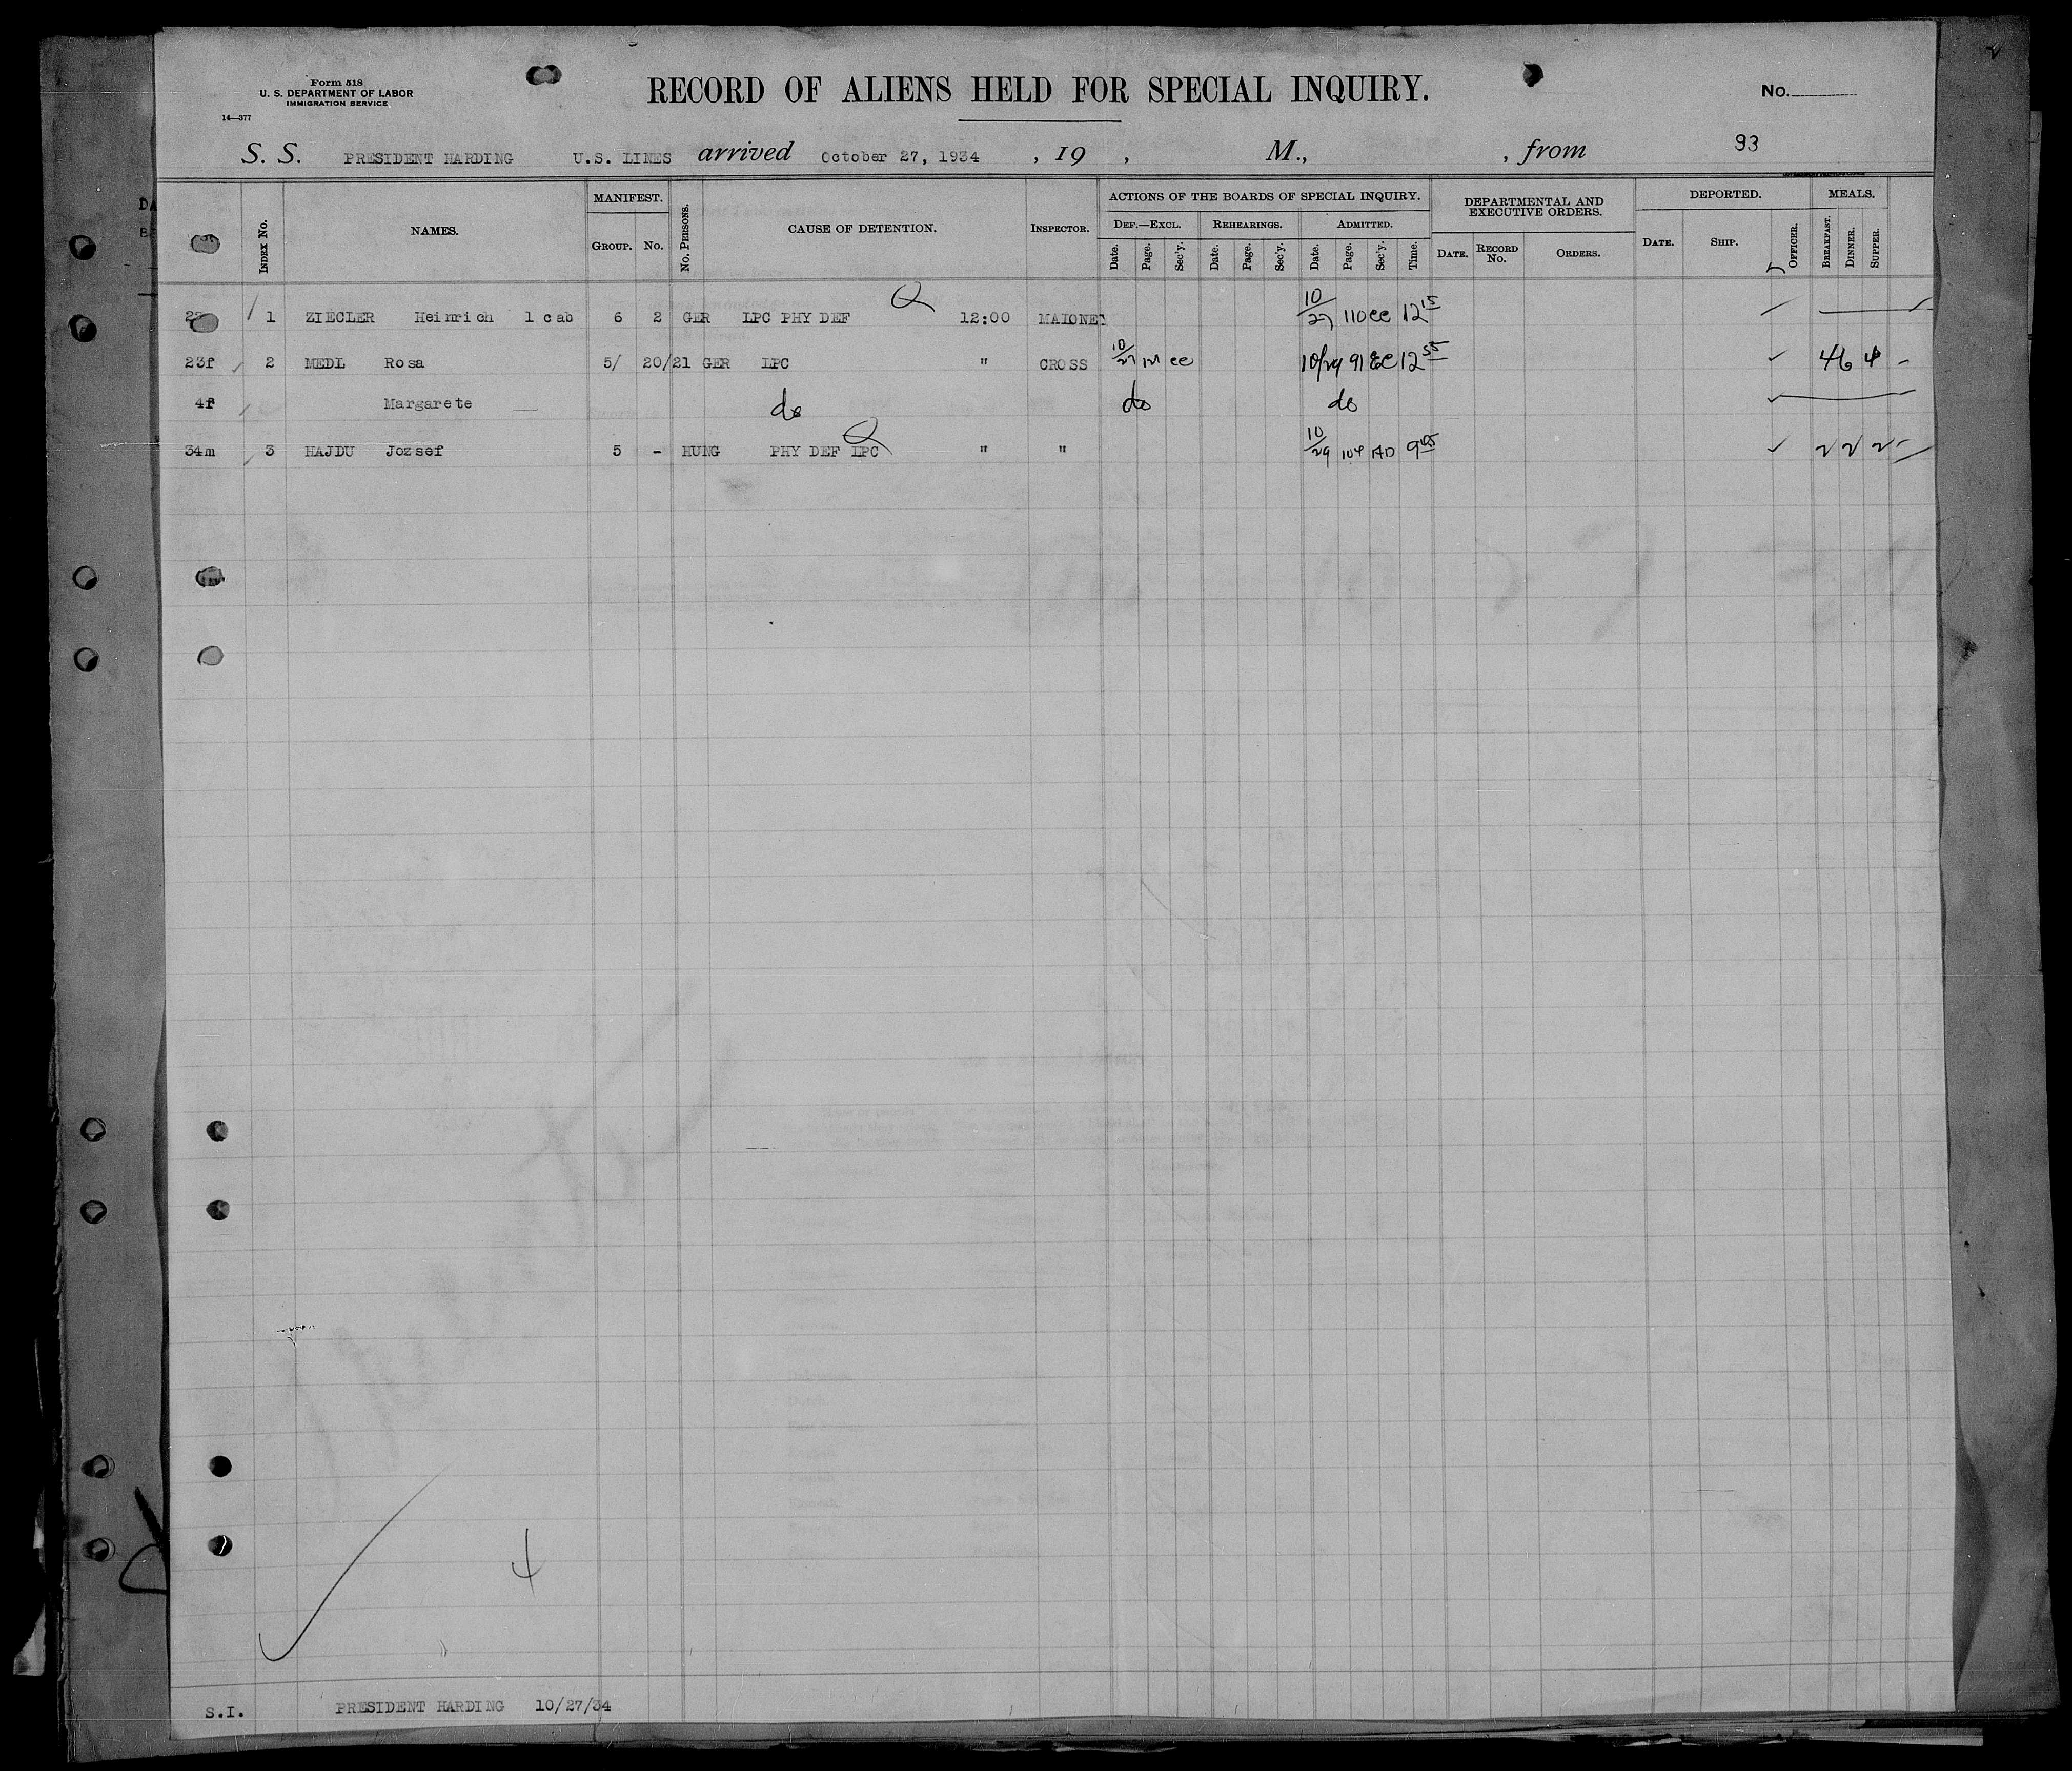 Form 518
U. S. DEPARTMENT OF LABOR
IMMIGRATION SERVICE
14—377
RECORD OF ALIENS HELD FOR SPECIAL INQUIRY.
No.
S. S. PRESIDENT HARDING U.S. LINES arrived October 27, 1934 , 19 , M., , from 93
INDEX No. NAMES. MANIFEST. GROUP. No. No. PERSONS. CAUSE OF DETENTION. INSPECTOR. ACTIONS OF THE BOARDS OF SPECIAL INQUIRY. DEPARTMENTAL AND EXECUTIVE ORDERS. DEPORTED. MEALS.
DEF.—EXCL. REHEARINGS. ADMITTED.
Date. Page. Sec'y. Date. Page. Sec'y. Date. Page. Sec'y. Time. DATE. RECORD No. ORDERS. DATE. SHIP. OFFICER. BREAKFAST. DINNER. SUPPER.
1 ZIEGLER Heinrich 1 cab 6 2 GER LPC PHY DEF 12:00 MAIONEY 10/27 110 ee 12 15
23f 2 MEDL Rosa 5/ 20/21 GER LPC " CROSS 10/27 121 ee 10/29 91 EC 12 55 4 6 4 -
4f Margarete do do do
34m 3 HAJDU Jozsef 5 - HUNG PHY DEF LPC " " 10/29 104 AD 9 45 2 2 2
4
S.I. PRESIDENT HARDING 10/27/34